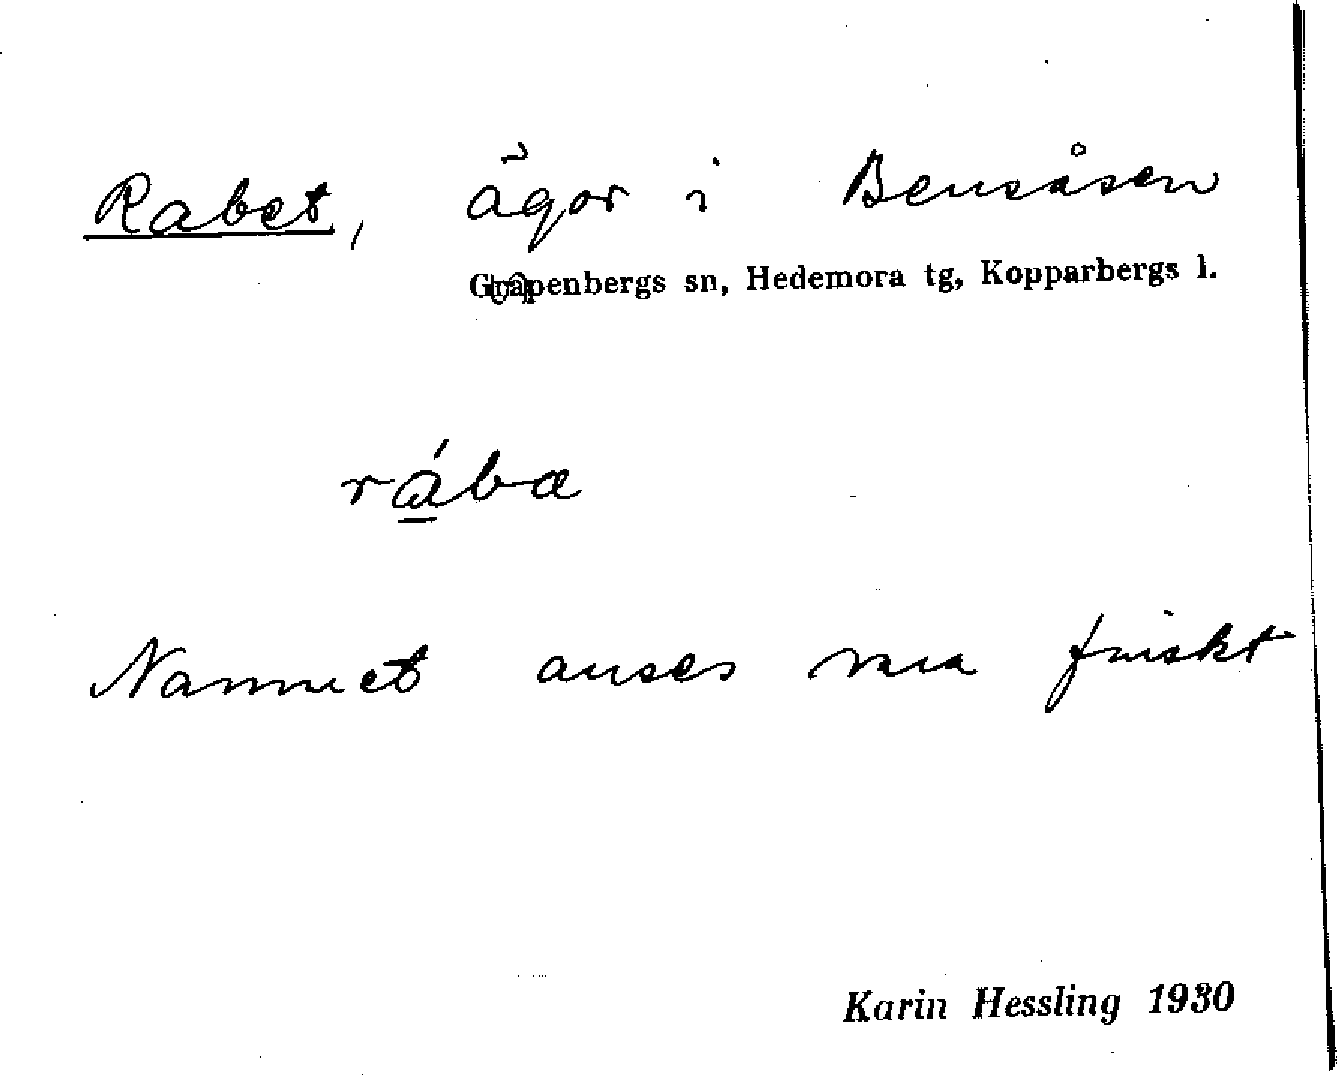 Rabet, ägor i Bensåsen
Grapenbergs sn, Hedemora tg, Kopparbergs l.
rába
Namnet anses vara finskt
Karin Hessling 1930